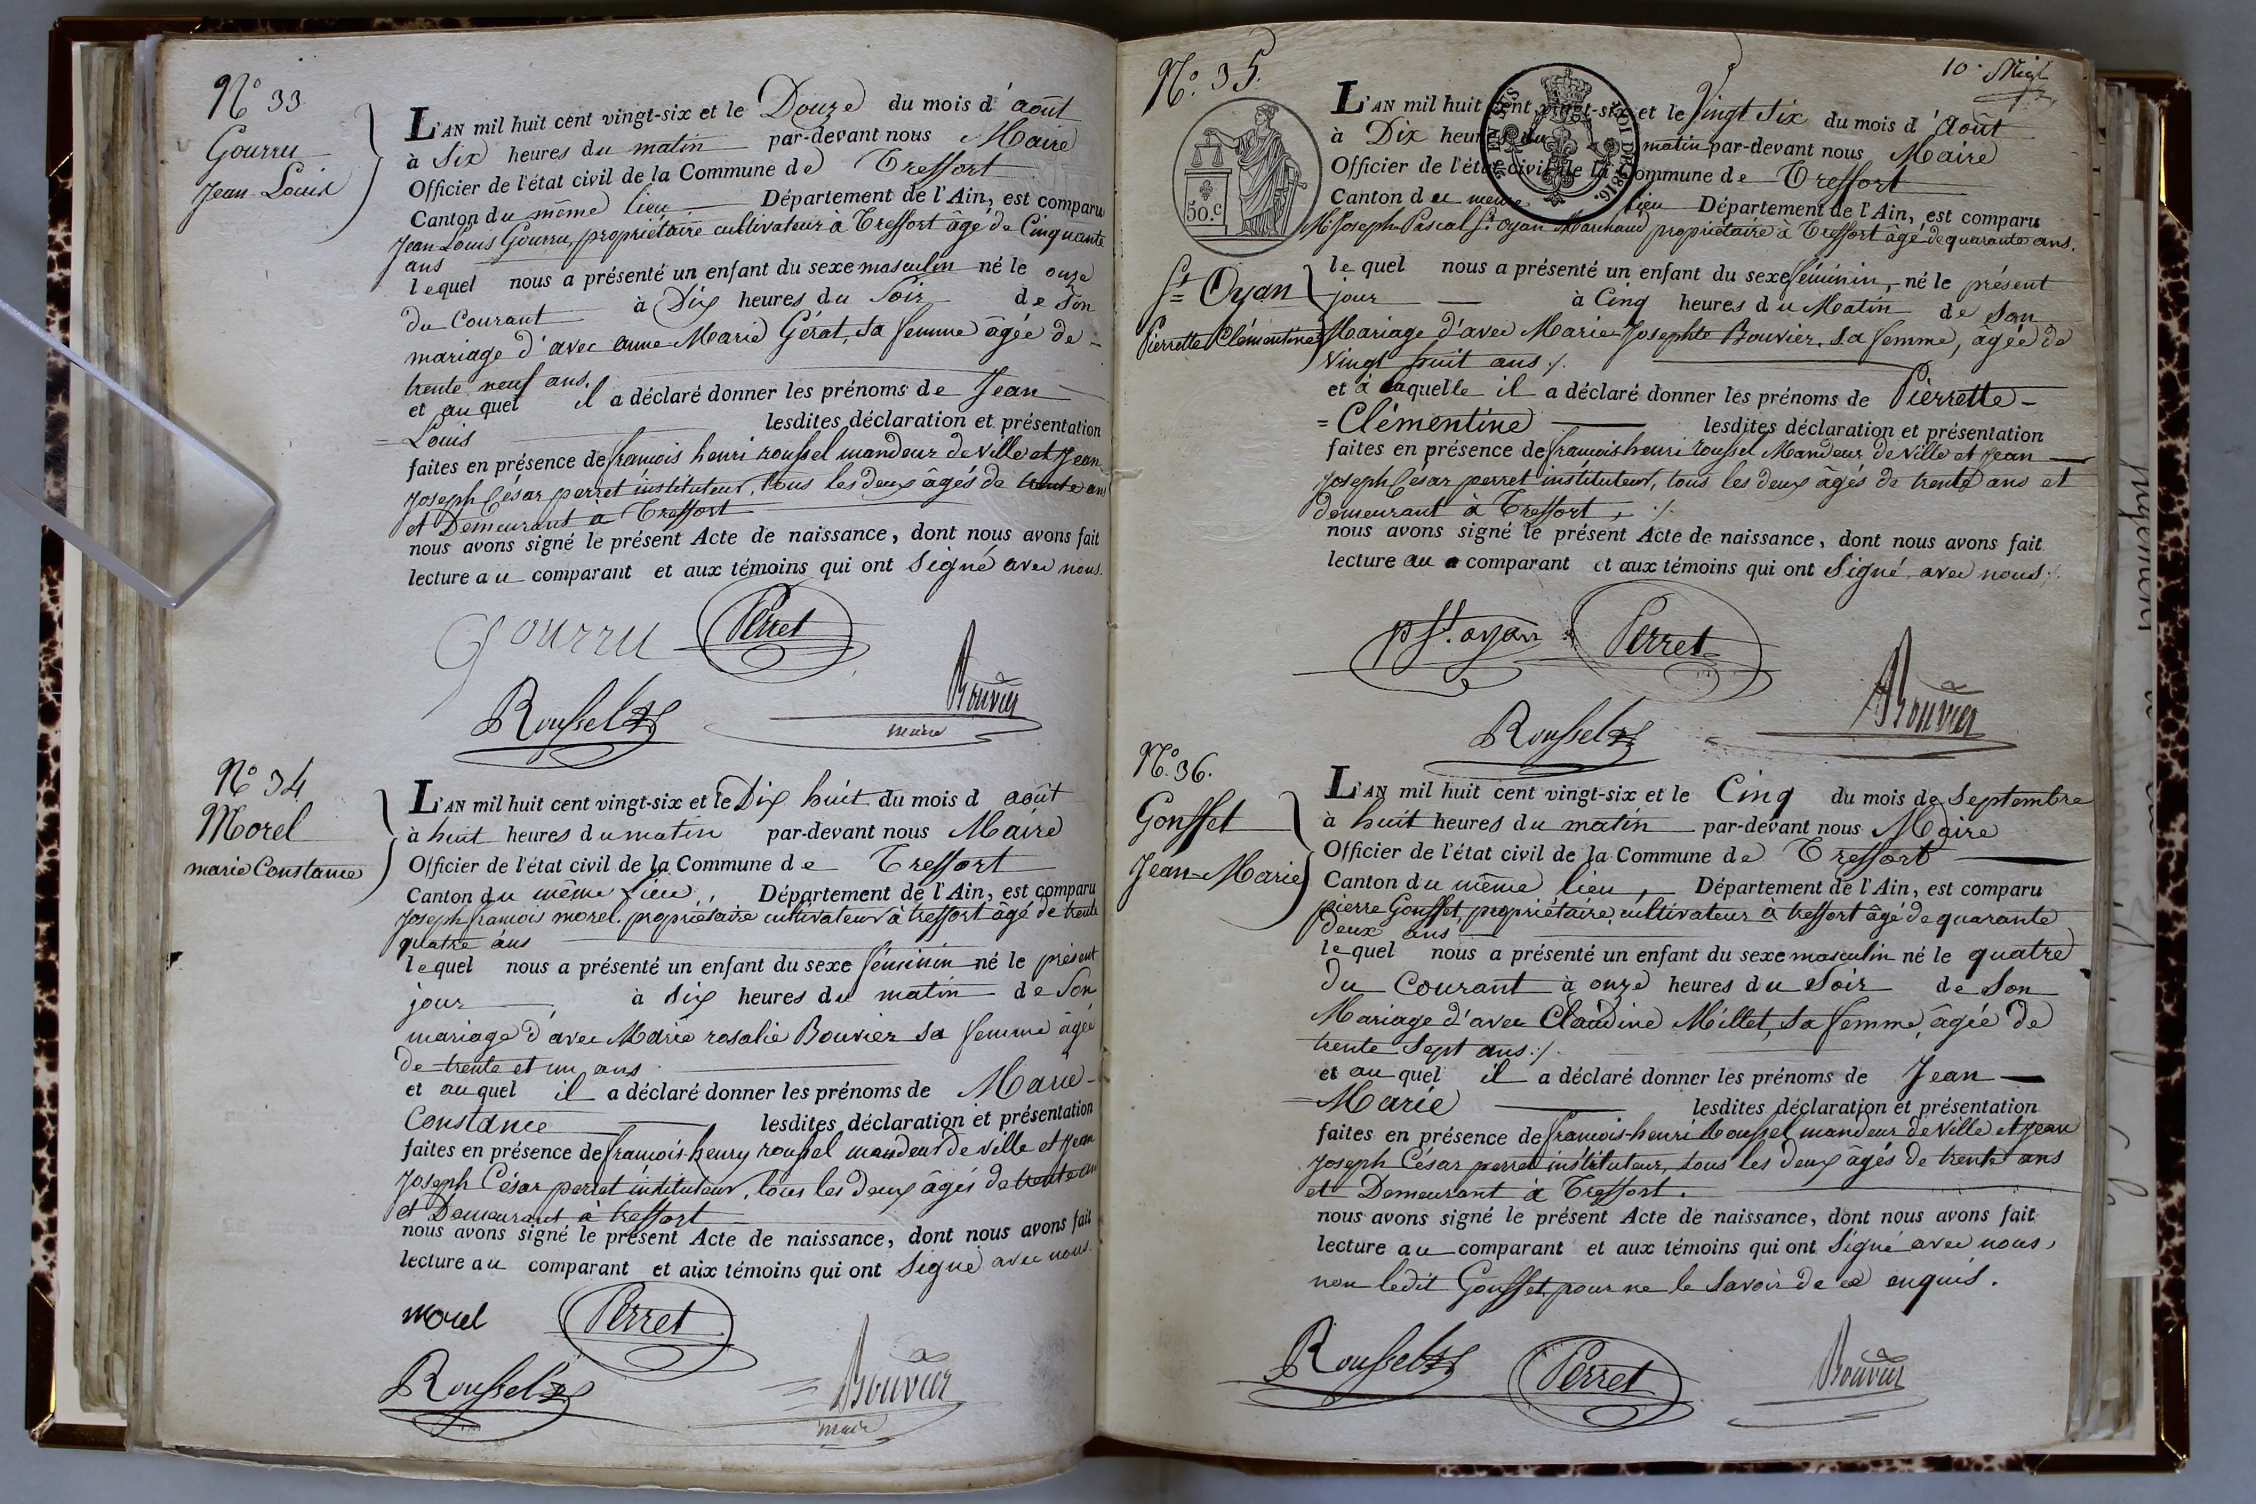 N° 33
Gourru
Jean Louis
L'AN mil huit cent vingt-six et le Douze du mois d'août
à Six heures du matin par-devant nous Maire
Officier de l'état civil de la Commune de Treffort
Canton du même lieu Département de l'Ain, est comparu
Jean Louis Gourru, propriétaire cultivateur à Treffort âgé de Cinquante
ans
lequel nous a présenté un enfant du sexe masculin né le onze
du Courant à Dix heures du Soir de Son
mariage d'avec anne Marie Gérat, sa femme âgée de
trente neuf ans.
et au quel il a déclaré donner les prénoms de Jean
= Louis lesdites déclaration et présentation
faites en présence de francois henri roussel mandeur de ville et Jean
Joseph César perret instituteur, tous les deux âgés de trente ans
et Demeurant à Treffort
nous avons signé le présent Acte de naissance, dont nous avons fait
lecture au comparant et aux témoins qui ont Signé avec nous.
Gourru Perret
Roussel Bouvier
maire
N° 34
Morel
marie Constance
L'AN mil huit cent vingt-six et le Dix huit du mois d août
à huit heures du matin par-devant nous Maire
Officier de l'état civil de la Commune de Treffort
Canton du même Lieu, Département de l'Ain, est comparu
Joseph francois morel propriétaire cultivateur à treffort âgé de trente
quatre ans
lequel nous a présenté un enfant du sexe féminin né le présent
jour à Six heures du matin de Son
mariage d'avec Marie rosalie Bouvier sa femme âgée
de trente et un ans
et au quel il a déclaré donner les prénoms de Marie-
Constance lesdites déclaration et présentation
faites en présence de francois-henry roussel mandeur de ville et Jean
Joseph César perret instituteur, tous les deux âgés de trente ans
et Demeurant à treffort
nous avons signé le présent Acte de naissance, dont nous avons fait
lecture au comparant et aux témoins qui ont Signé avec nous.
morel Perret
Roussel Bouvier
maire
10.
N° 35.
50.C
L'AN mil huit cent vingt-six et le Vingt Six du mois d'Août
à Dix heures du matin par-devant nous Maire
Officier de l'état civil de la Commune de Treffort
Canton du même lieu Département de l'Ain, est comparu
Mr Joseph Pascal St oyan Marchand propriétaire à Treffort âgé de quarante ans.
St Oyan
Pierrette Clémentine
lequel nous a présenté un enfant du sexe féminin, né le présent
jour à Cinq heures du Matin de Son
Mariage d'avec Marie Josephte Bouvier, sa femme, âgée de
Vingt huit ans ./.
et à laquelle il a déclaré donner les prénoms de Pierrette-
= Clémentine lesdites déclaration et présentation
faites en présence de francois henri roussel Mandeur de ville et Jean
Joseph César perret instituteur, tous les deux âgés de trente ans et
demeurant à Treffort, ./.
nous avons signé le présent Acte de naissance, dont nous avons fait
lecture au comparant et aux témoins qui ont Signé avec nous ./.
p St. oyan Perret
Roussel Bouvier
N° 36.
Gousset
Jean-Marie
L'AN mil huit cent vingt-six et le Cinq du mois de Septembre
à huit heures du matin par-devant nous Maire
Officier de l'état civil de la Commune de Treffort
Canton du même lieu, Département de l'Ain, est comparu
pierre Gousset, propriétaire cultivateur à treffort âgé de quarante
deux ans
lequel nous a présenté un enfant du sexe masculin né le quatre
du Courant à onze heures du Soir de Son
Mariage d'avec Claudine Millet, sa femme, âgée de
trente Sept ans ./.
et au quel il a déclaré donner les prénoms de Jean
= Marie lesdites déclaration et présentation
faites en présence de francois-henri Roussel mandeur de ville et Jean
Joseph César perret instituteur, tous les deux âgés de trente ans
et Demeurant à Treffort.
nous avons signé le présent Acte de naissance, dont nous avons fait
lecture au comparant et aux témoins qui ont Signé avec nous,
non ledit Gousset, pour ne le Savoir de ce enquis.
Roussel Perret Bouvier